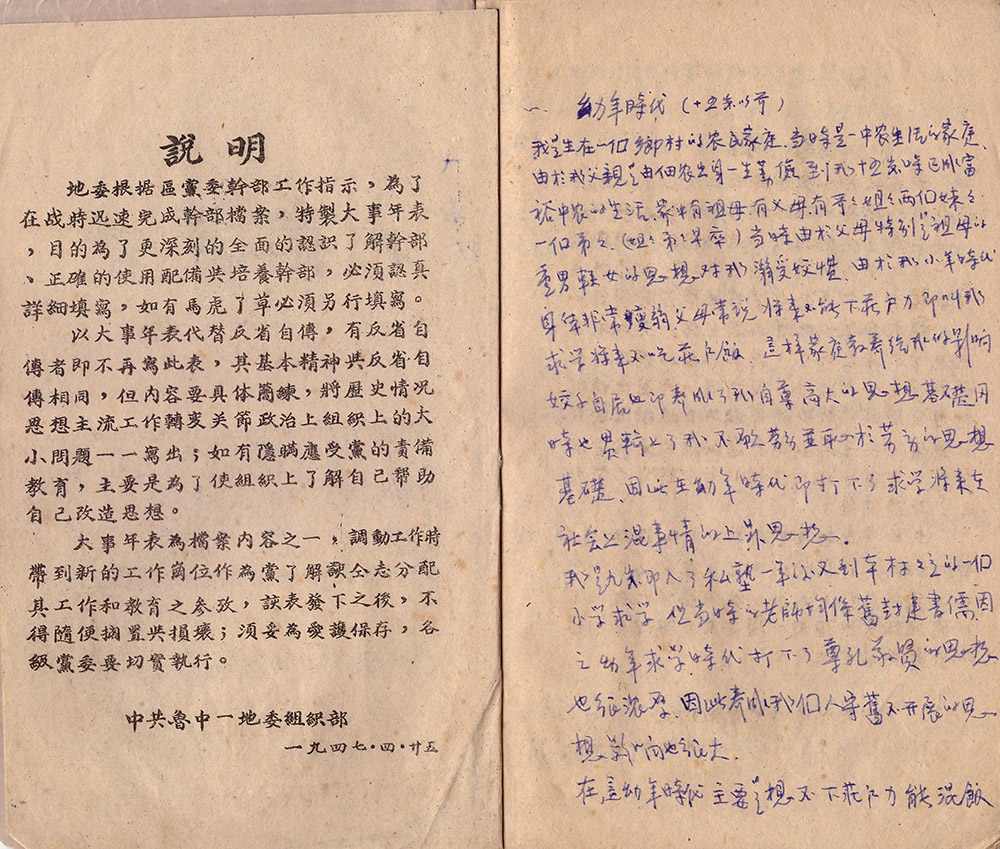 說明
地委根据區黨委幹部工作指示，為了
在战時迅速完成幹部檔案，特製大事年表
，目的為了更深刻的全面的認識了解幹部
、正確的使用配備共培養幹部，必須認真
詳細填寫，如有馬虎了草必須另行填寫。
以大事年表代替反省自傳，有反省自
傳者即不再寫此表，其基本精神共反省自
傳相同，但内容要具体簡練，將歷史情况
思想主流工作轉变关節政治上組織上的大
小問題一一寫出；如有隱瞞應受黨的責備
教育，主要是為了使組織上了解自己幫助
自己改造思想。
大事年表為檔案内容之一，調動工作時
帶到新的工作崗位作為黨了解該仝志分配
具工作和教育之参攷，該表發下之後，不
得隨便擱置共損壞；須妥為愛護保存，各
級黨委要切實執行。
中共魯中一地委組織部
一九四七·四·廿五
一、幼年時代（十五岁以前）
我是生在一们鄉村的农民家庭，当時是一中农生活的家庭，
由於我父親是由佃农出身一生勤儉，到我十五岁時已成富
裕中农的生活，家中有祖母，有父母，有哥々姐々两们妹々
一们弟々，（姐々弟々早卒）当時由於父母特别是祖母的
重男輕女的思想，对我溺受姣慣，由於我小年時代
身体非常瘦弱父母常説將来不能下莊户力即叫我
求学將来不吃莊户飯，這样家庭教養給我的影响
姣子自居也即养成了我自尊高大的思想基礎，因
時也貫輸上了我不愿劳动並耻於劳动的思想
基礎，因此在幼年時代即打下了求学將来在
社会上混事情的上昇思想。
我是九岁即入了私塾一年后又到车村々立的一们
小学求学，但当時的老師均係舊封建書儒，因
之幼年求学時代打下了尊孔敬賢的思想
也很浓厚，因此养成我们人守舊不开展的思
想影响也很大，
在這幼年時代主要是想不下莊户力能混飯